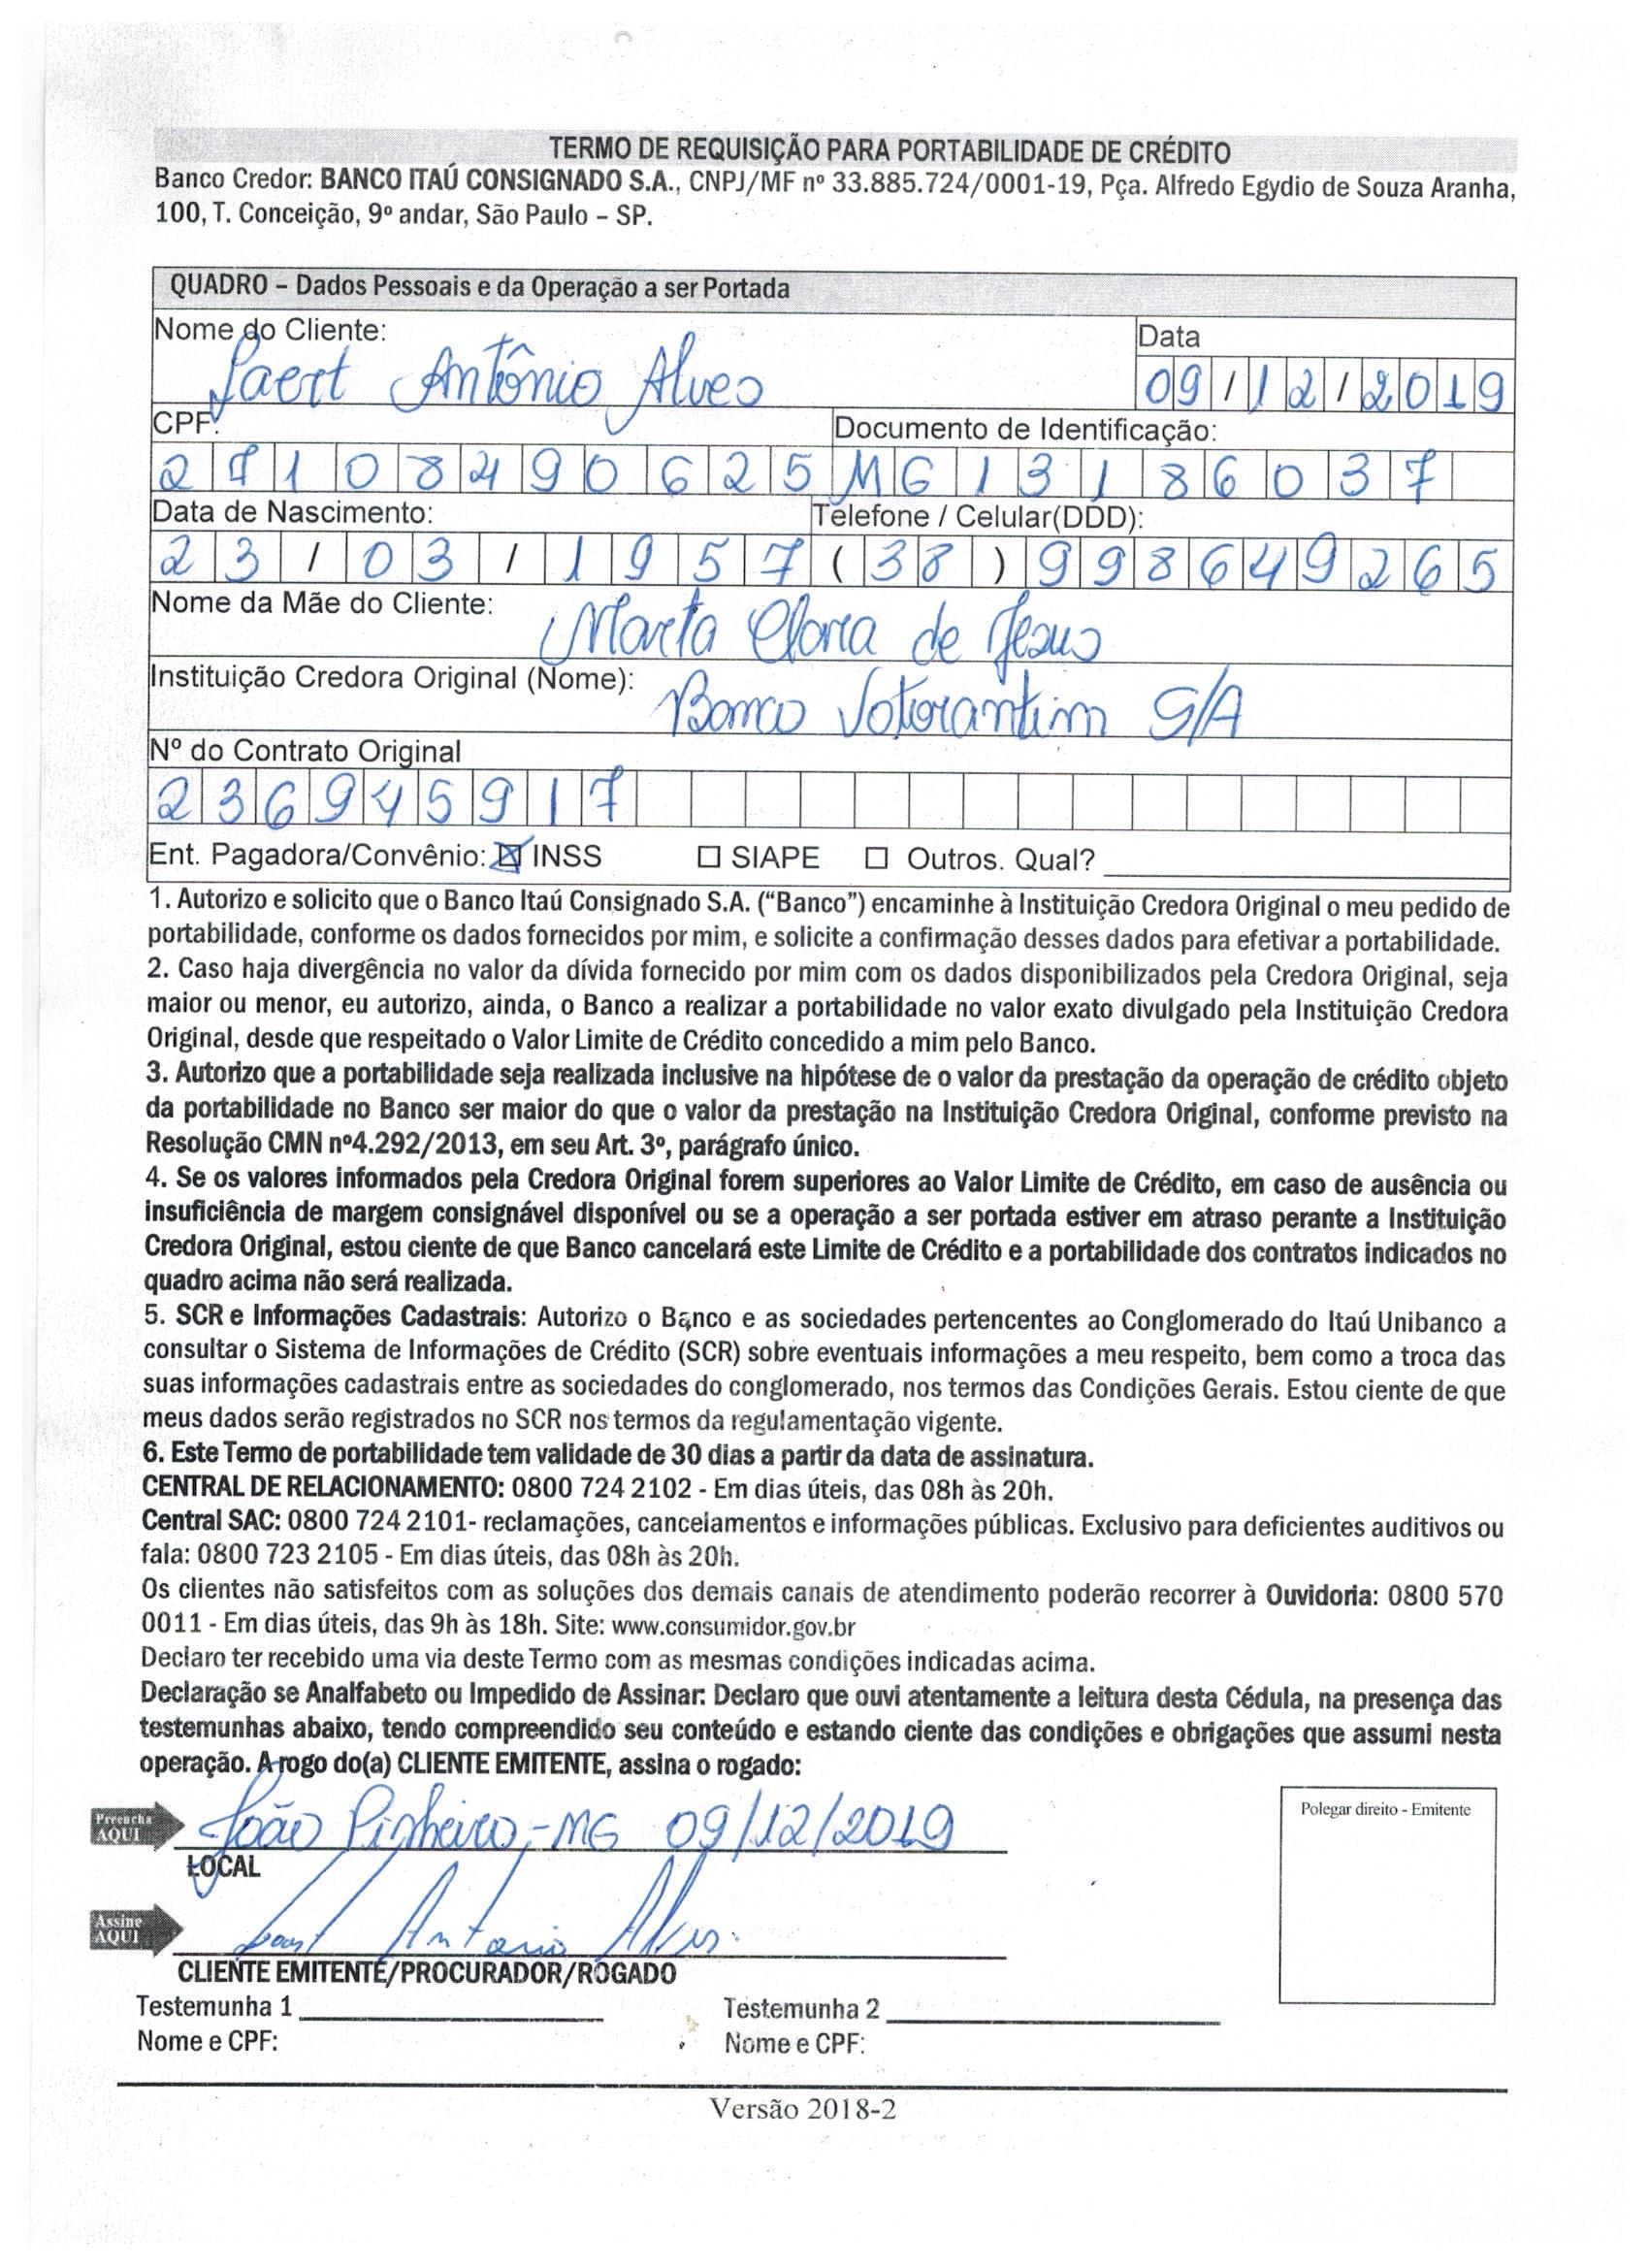 TERMO DE REQUISIÇÃO PARA PORTABILIDADE DE CRÉDITO
Banco Credor: BANCO ITAÚ CONSIGNADO S.A., CNPJ/MF nº 33.885.724/0001-19, Pça. Alfredo Egydio de Souza Aranha,
100, T. Conceição, 9º andar, São Paulo – SP.
QUADRO – Dados Pessoais e da Operação a ser Portada
Nome do Cliente: Data
Laert Antônio Alves 09/12/2019
CPF: Documento de Identificação:
27108490625 MG13186037
Data de Nascimento: Telefone / Celular(DDD):
23/03/1957 (38)998649265
Nome da Mãe do Cliente: Maria de Jesus
Instituição Credora Original (Nome): Banco Votorantim S/A
Nº do Contrato Original
236945917
Ent. Pagadora/Convênio: ☒ INSS ☐ SIAPE ☐ Outros. Qual?
1. Autorizo e solicito que o Banco Itaú Consignado S.A. (“Banco”) encaminhe à Instituição Credora Original o meu pedido de
portabilidade, conforme os dados fornecidos por mim, e solicite a confirmação desses dados para efetivar a portabilidade.
2. Caso haja divergência no valor da dívida fornecido por mim com os dados disponibilizados pela Credora Original, seja
maior ou menor, eu autorizo, ainda, o Banco a realizar a portabilidade no valor exato divulgado pela Instituição Credora
Original, desde que respeitado o Valor Limite de Crédito concedido a mim pelo Banco.
3. Autorizo que a portabilidade seja realizada inclusive na hipótese de o valor da prestação da operação de crédito objeto
da portabilidade no Banco ser maior do que o valor da prestação na Instituição Credora Original, conforme previsto na
Resolução CMN nº4.292/2013, em seu Art. 3º, parágrafo único.
4. Se os valores informados pela Credora Original forem superiores ao Valor Limite de Crédito, em caso de ausência ou
insuficiência de margem consignável disponível ou se a operação a ser portada estiver em atraso perante a Instituição
Credora Original, estou ciente de que Banco cancelará este Limite de Crédito e a portabilidade dos contratos indicados no
quadro acima não será realizada.
5. SCR e Informações Cadastrais: Autorizo o Banco e as sociedades pertencentes ao Conglomerado do Itaú Unibanco a
consultar o Sistema de Informações de Crédito (SCR) sobre eventuais informações a meu respeito, bem como a troca das
suas informações cadastrais entre as sociedades do conglomerado, nos termos das Condições Gerais. Estou ciente de que
meus dados serão registrados no SCR nos termos da regulamentação vigente.
6. Este Termo de portabilidade tem validade de 30 dias a partir da data de assinatura.
CENTRAL DE RELACIONAMENTO: 0800 724 2102 - Em dias úteis, das 08h às 20h.
Central SAC: 0800 724 2101- reclamações, cancelamentos e informações públicas. Exclusivo para deficientes auditivos ou
fala: 0800 723 2105 - Em dias úteis, das 08h às 20h.
Os clientes não satisfeitos com as soluções dos demais canais de atendimento poderão recorrer à Ouvidoria: 0800 570
0011 - Em dias úteis, das 9h às 18h. Site: www.consumidor.gov.br
Declaro ter recebido uma via deste Termo com as mesmas condições indicadas acima.
Declaração se Analfabeto ou Impedido de Assinar: Declaro que ouvi atentamente a leitura desta Cédula, na presença das
testemunhas abaixo, tendo compreendido seu conteúdo e estando ciente das condições e obrigações que assumi nesta
operação. A rogo do(a) CLIENTE EMITENTE, assina o rogado:
Polegar direito - Emitente
Preencha AQUI João Pinheiro-MG 09/12/2019
LOCAL
Assine AQUI Laert Antonio Alves.
CLIENTE EMITENTE/PROCURADOR/ROGADO
Testemunha 1 Testemunha 2
Nome e CPF: Nome e CPF:
Versão 2018-2